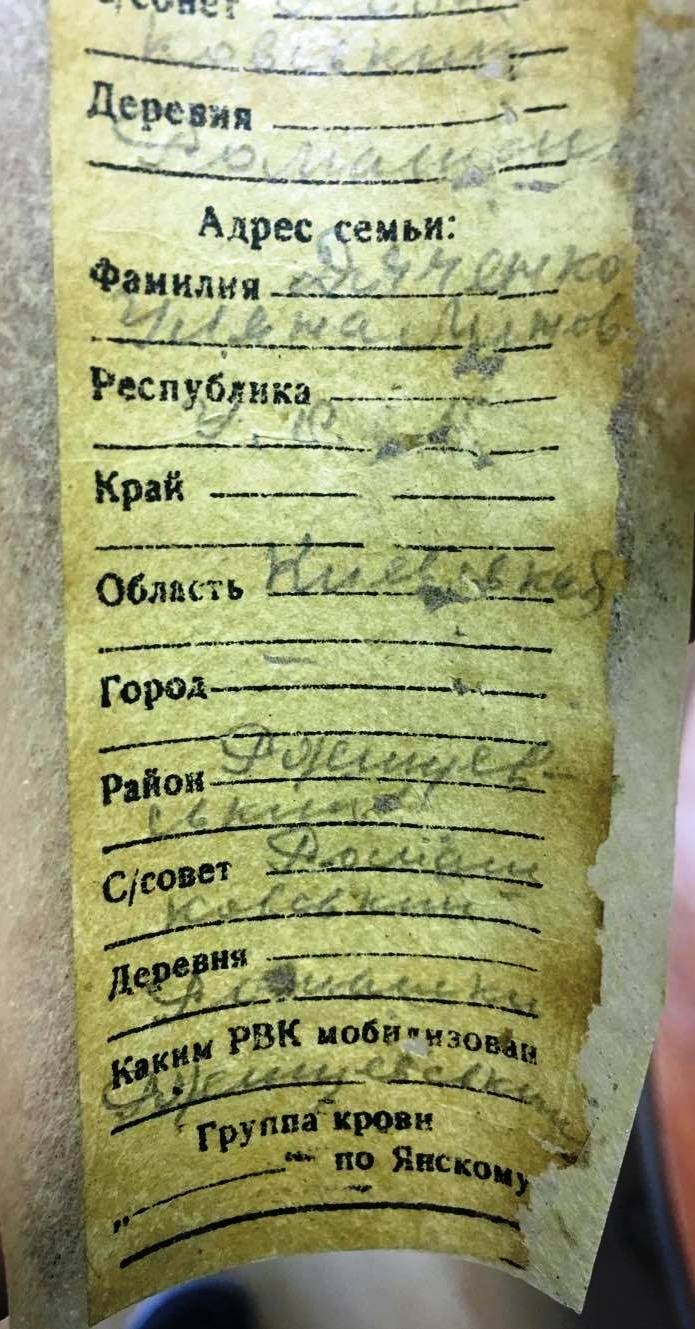 С/совет Ромаш
ковський
Деревня
Ромашки
Адрес семьи:
Фамилия Дяченко
Республика
У.С.С.Р.
Край
Область Киевская
Город
Район Ржищев-
ський
С/совет Ромаш
ковский
Деревня
Ромашки
Каким РВК мобилизован
Ржищевським
Группа крови
по Янскому